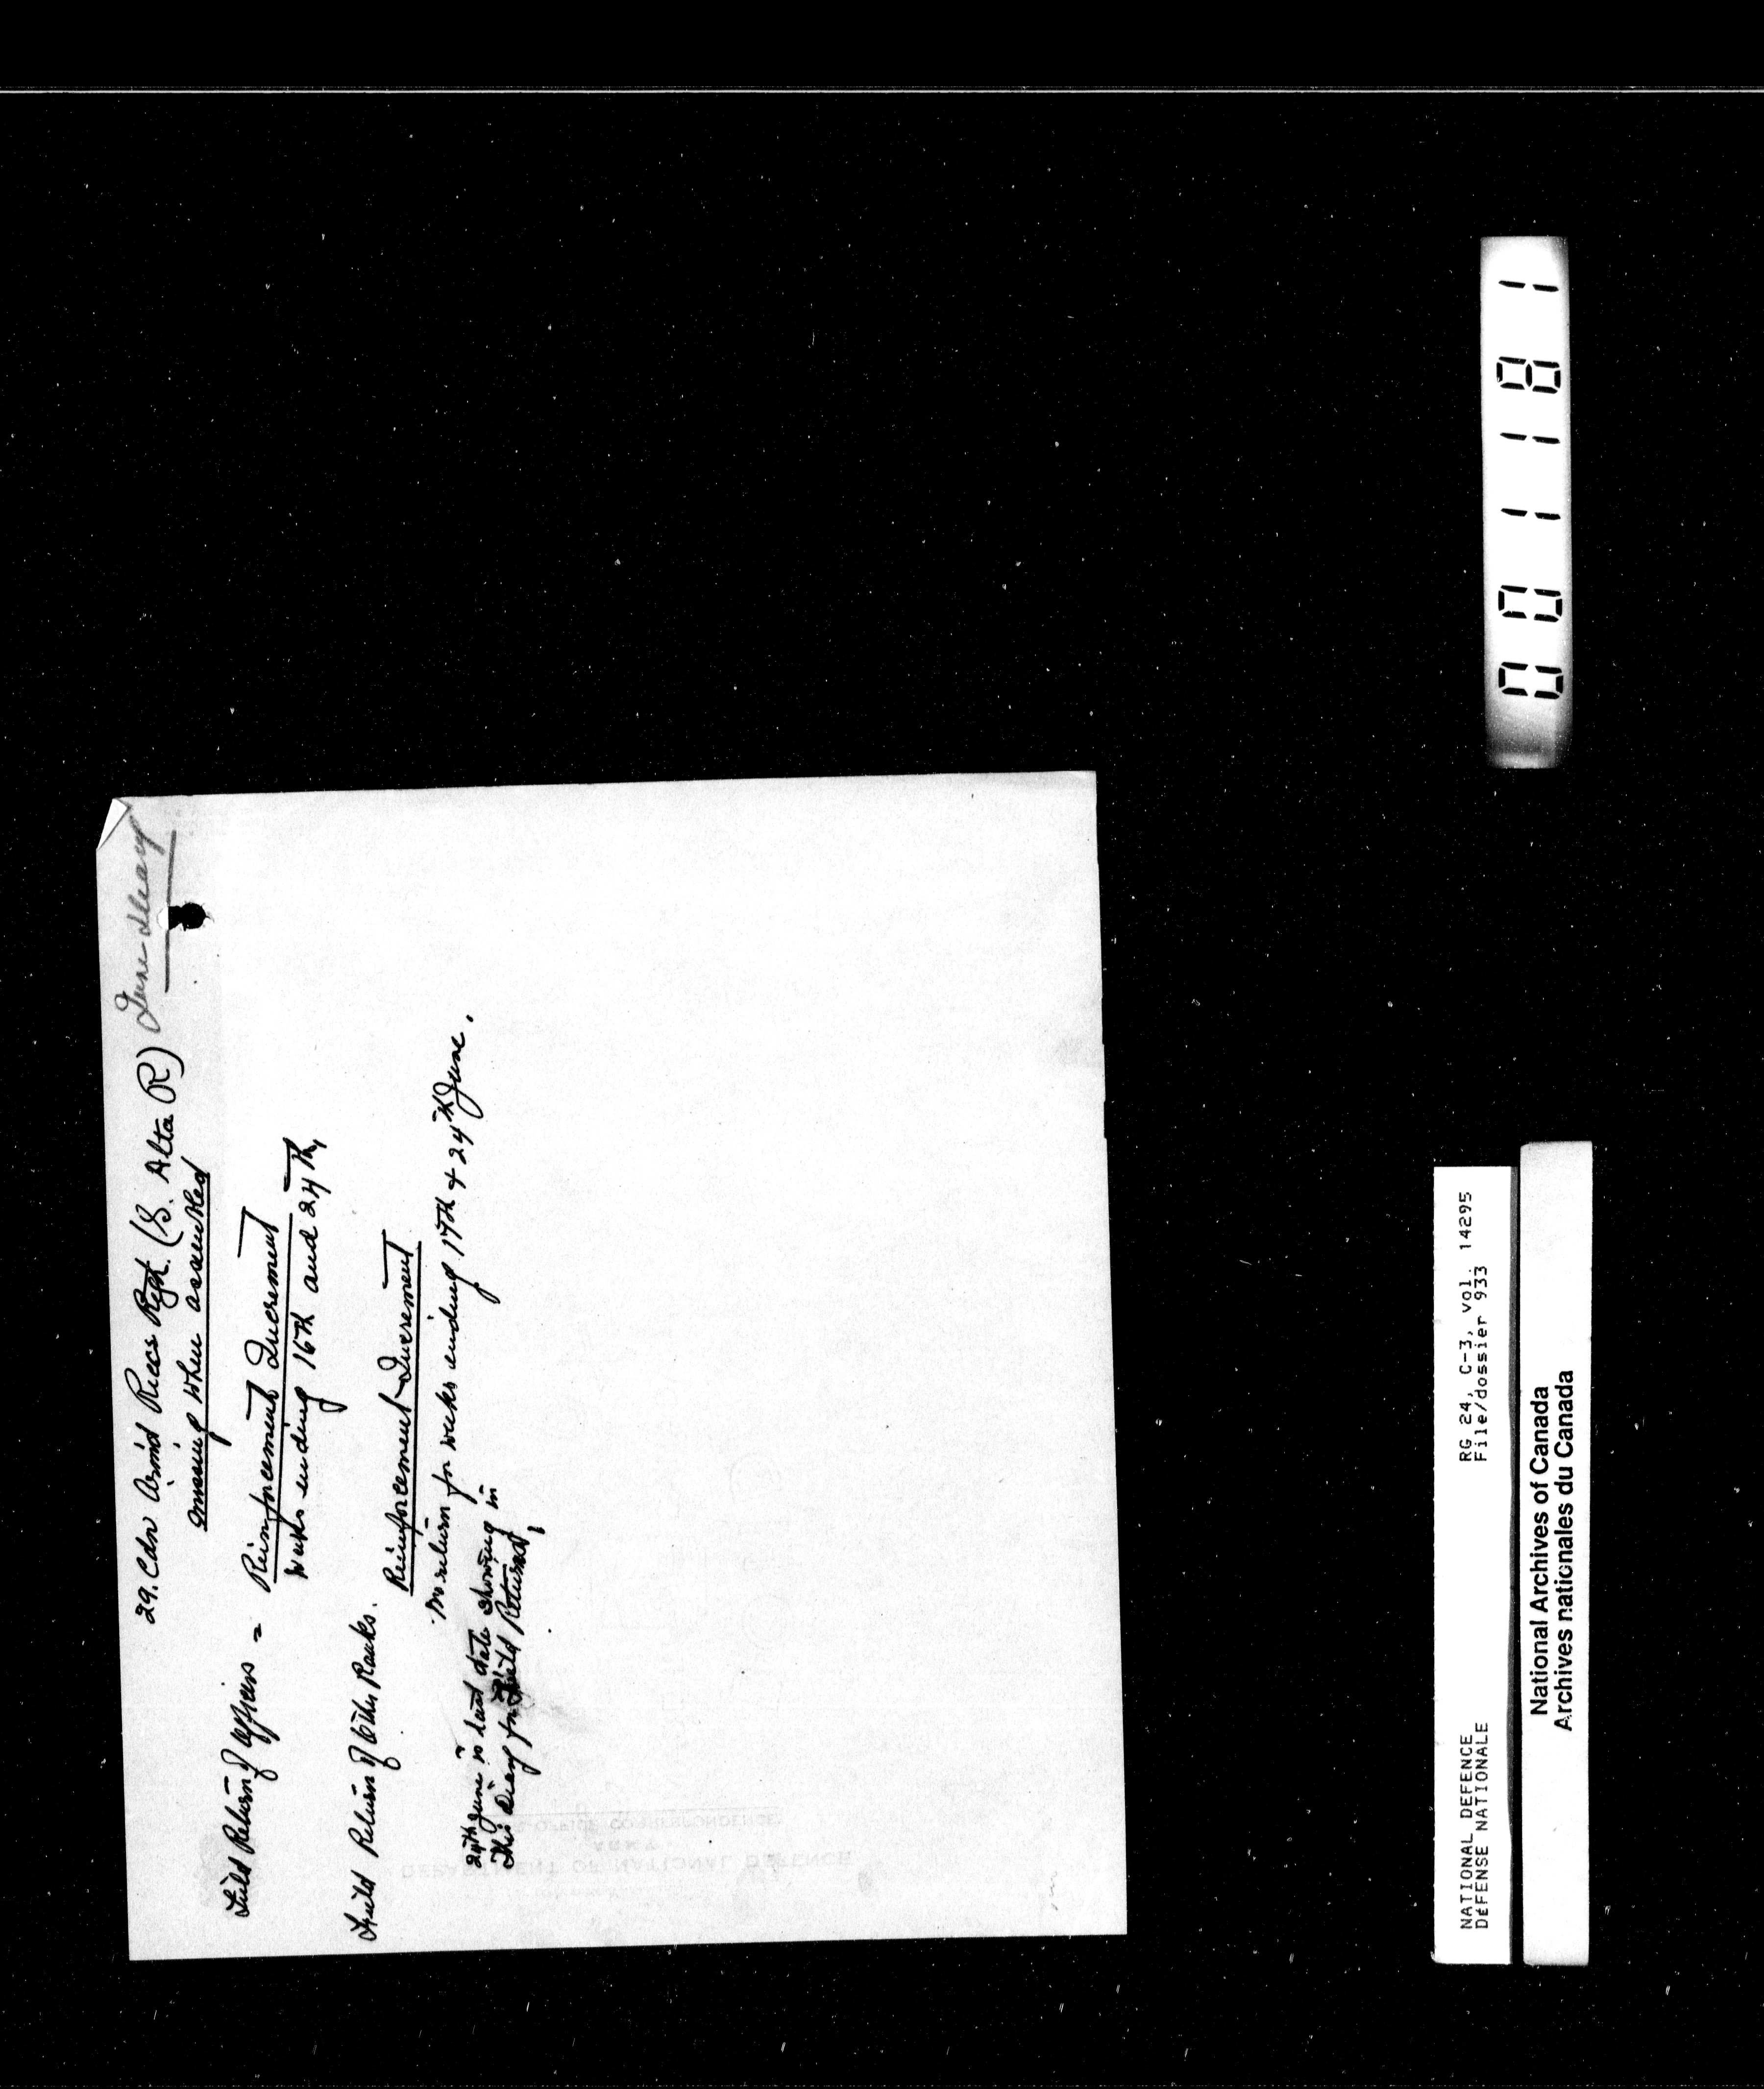 29. Cdn Armd Recce Regt. (S. Alta R) June Diary
missing when assembled
Field Return of Officers = Reinforcement Increment
weeks ending 16th and 24th,
Field Return of Other Ranks.
Reinforcement Increment
No return for weeks ending 17th + 24th June.
24th June is last date showing in
This Diary for Field Returns,
DEPARTMENT OF NATIONAL DEFENCE
ARMY
OFFICE CORRESPONDENCE
001181
NATIONAL DEFENCE RG 24, C-3, vol. 14295
DÉFENSE NATIONALE File/dossier 933
National Archives of Canada
Archives nationales du Canada